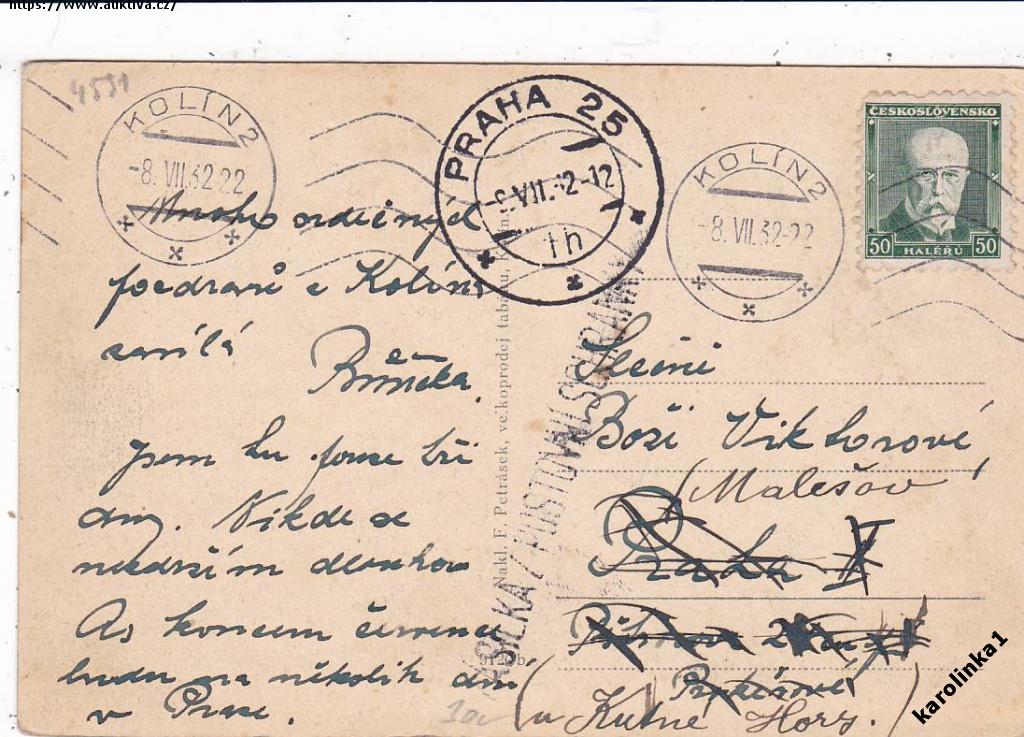 https://www.auktiva.cz/
4591
KOLÍN 2
-8. VII. 32-22
PRAHA 25
VII. 32-12
1h
KOLÍN 2
-8. VII. 32-22
ČESKOSLOVENSKO
50 HALÉŘŮ 50
Mnoho srdečných
pozdravů z Kolína
zasílá
Růženka
Jsem tu pouze tři
dny. Nikde se
nezdržím dlouho
As koncem července
budu na několik dní
v Praze.
Nakl. F. Petrásek, velkoprodej tabáku,
ZÁSILKA Z POŠTOVNÍ SCHRÁNKY
Slečně
Boži Viktorové
(Malešov
Praha
u Kutné Hory.)
karolinka1